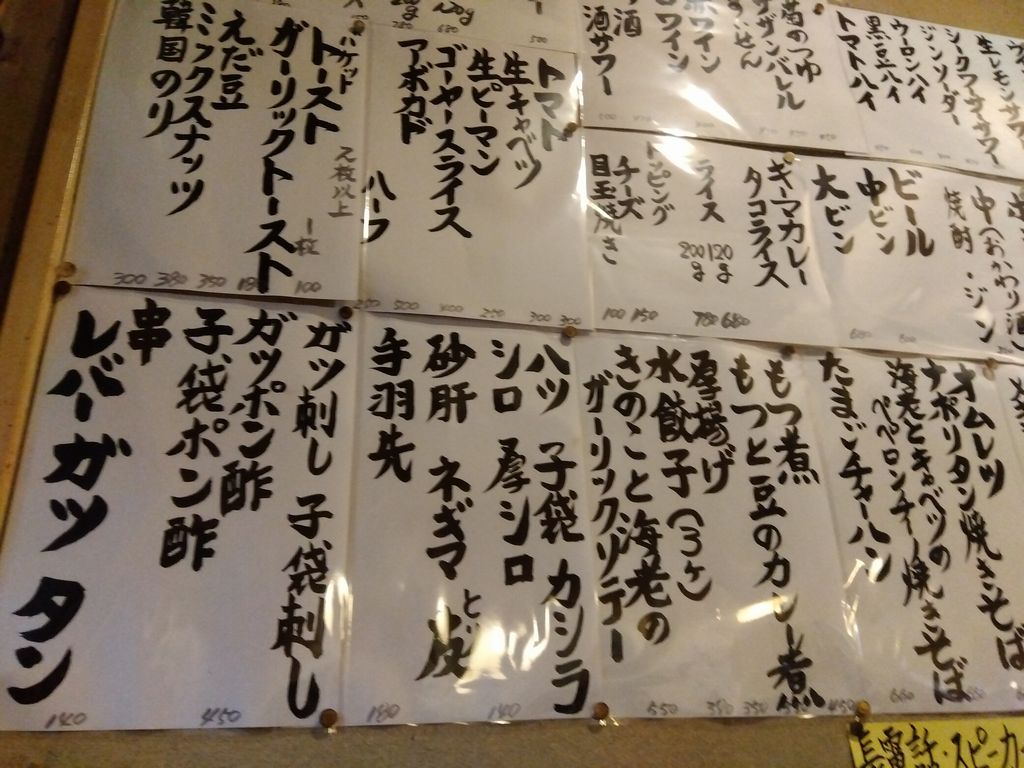 生レモンサワー
シークワーサーサワー
ジンソーダー
ウーロンハイ
黒豆ハイ
トマトハイ
赤ワイン
白ワイン
酒サワー
トマト
生キャベツ
生ピーマン
ゴーヤースライス
アボカド ハーフ
300 300 250 400 500 250
バケット
トースト 2枚以上 1枚
ガーリックトースト
えだ豆
ミックスナッツ
韓国のり
100 180 350 380 300
ビール
中ビン
大ビン
キーマカレー
タコライス
ライス 120g 200g
トッピング
チーズ
目玉焼き
680 780 150 100
オムレツ
ナポリタン焼きそば
海老とキャベツの
ペペロンチーノ焼きそば
たまごチャーハン
もつ煮
もつと豆のカレー煮
厚揚げ
水餃子(3ケ)
きのこと海老の
ガーリックソテー
450 350 350 550
ハツ 子袋 カシラ
シロ 厚シロ
砂肝 ネギマ とり皮
手羽先
140 180
ガツ刺し 子袋刺し
ガッポン酢
子袋ポン酢
串
レバーガツ タン
450 140
長電話・スピーカー